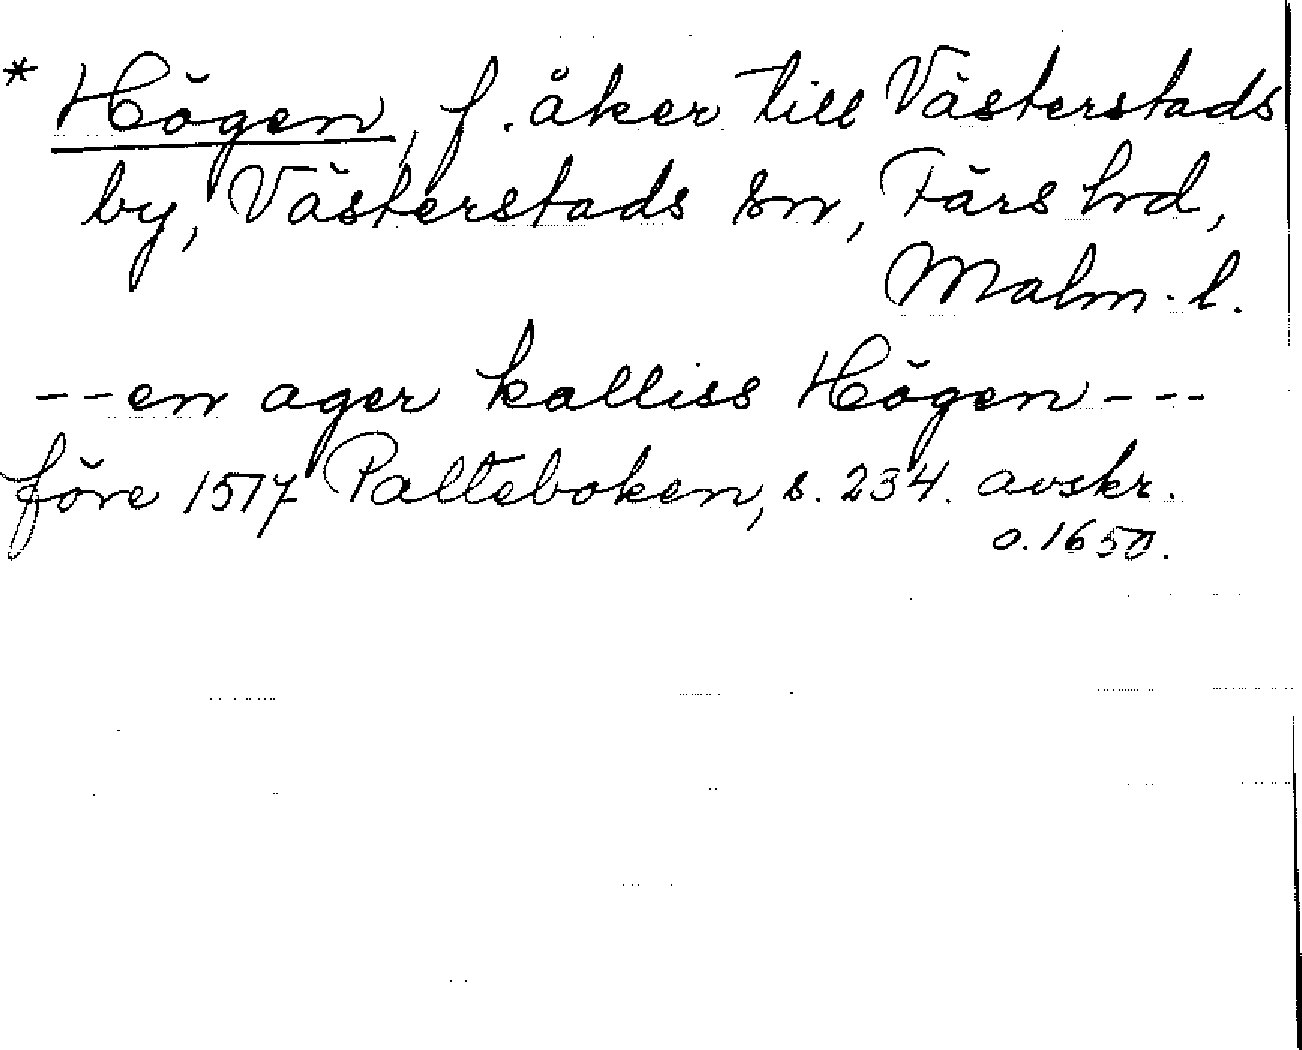 * Högen, f. åker till Västerstads
by, Västerstads sn, Färs hrd,
Malm. l.
--en ager kalliss Högen---
före 1517 Palteboken, s. 234. avskr.
o. 1650.